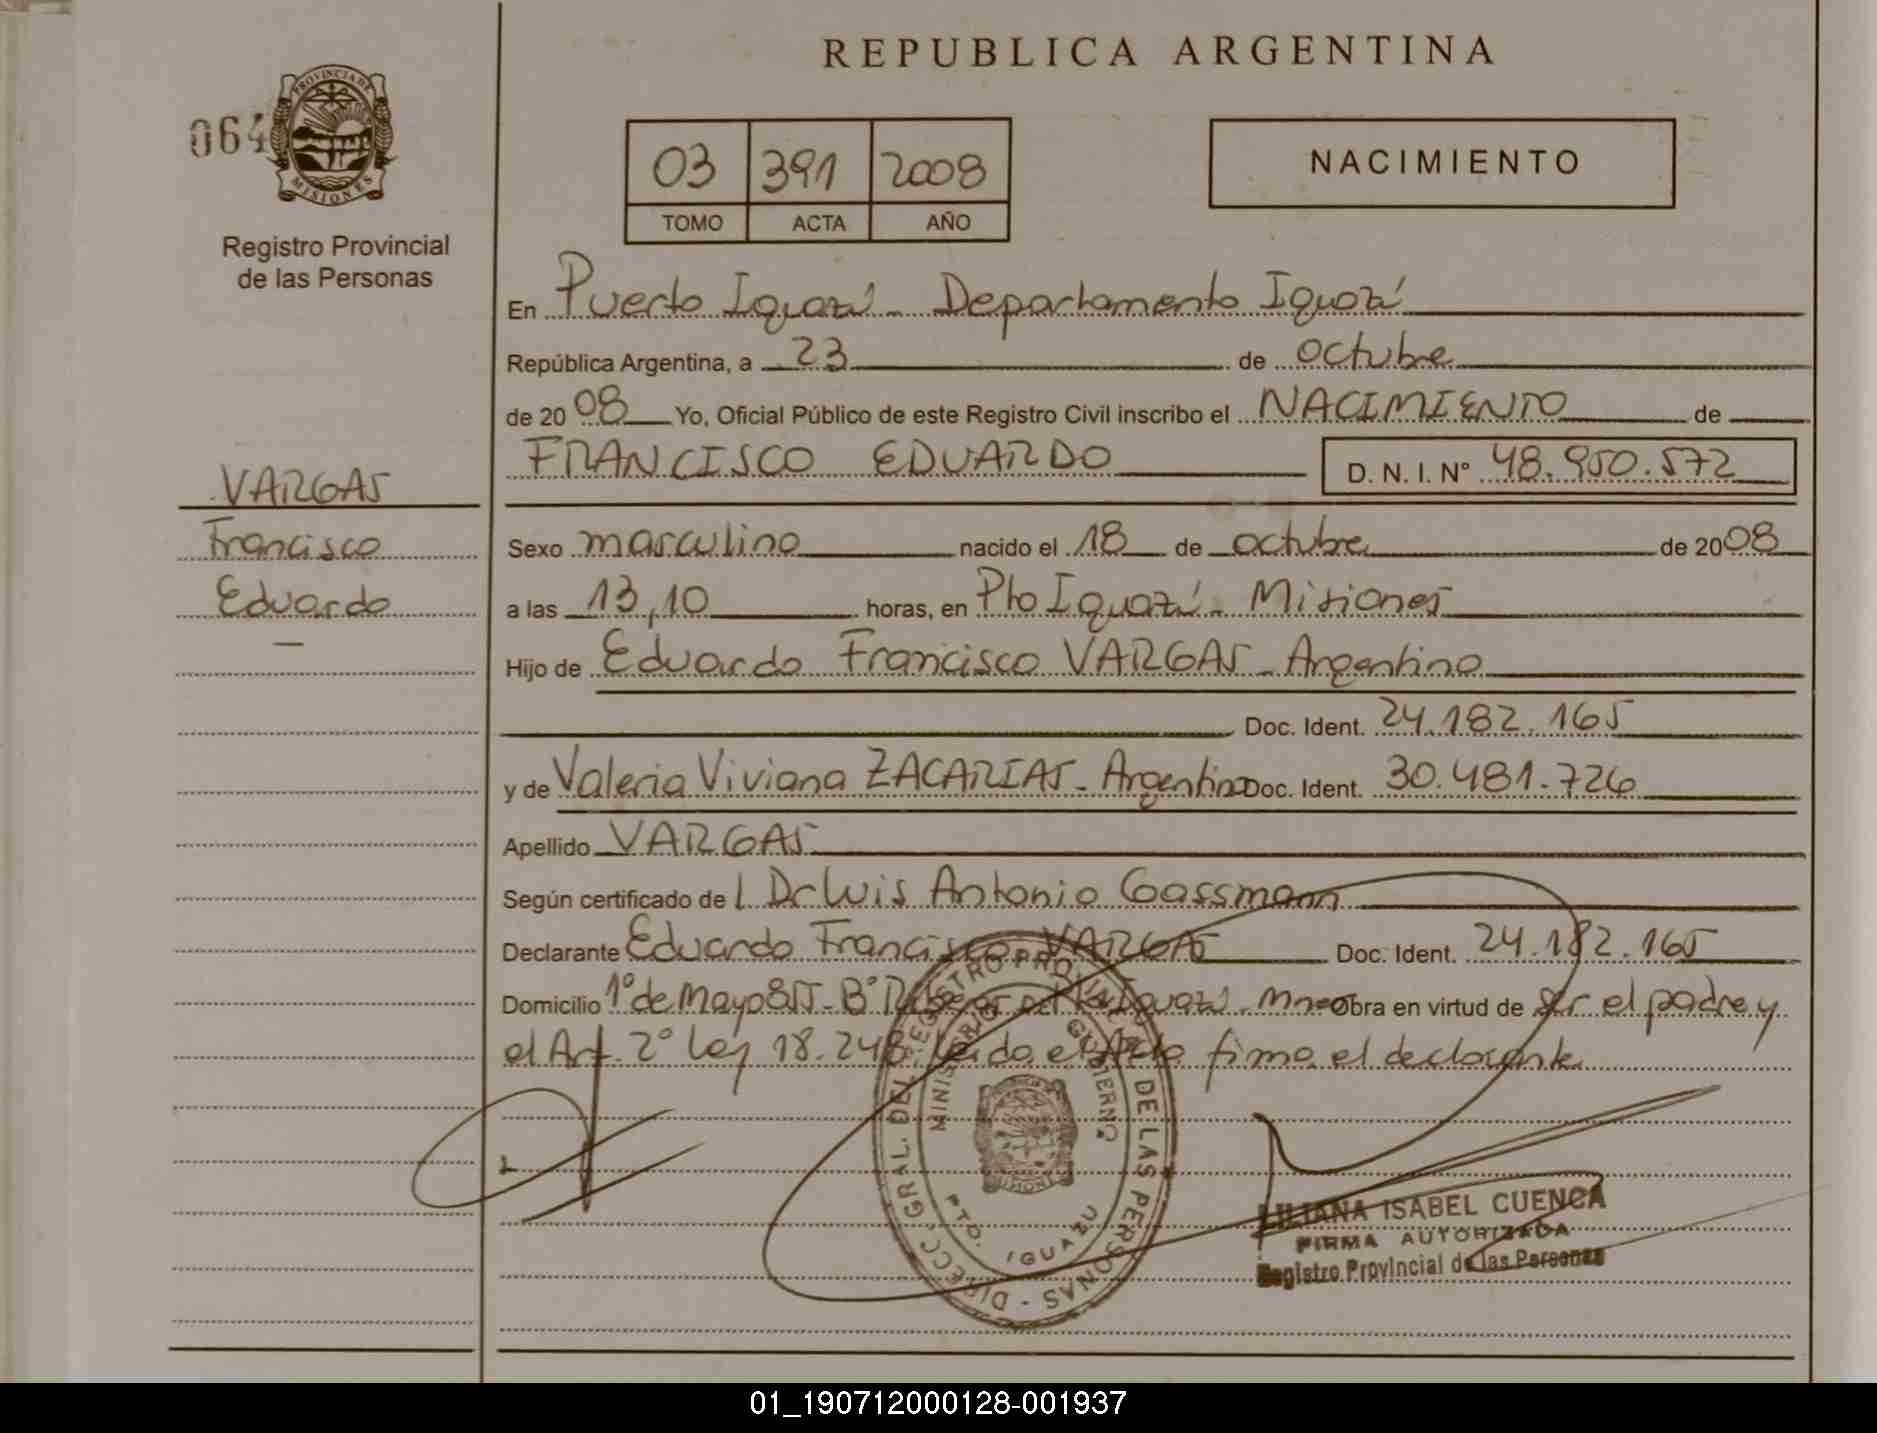 REPUBLICA ARGENTINA
064
PROVINCIA DE
MISIONES
Registro Provincial
de las Personas
03 391 2008
TOMO ACTA AÑO
NACIMIENTO
En Puerto Iguazú - Departamento Iguazú
República Argentina, a 23 de octubre
de 2008 Yo, Oficial Público de este Registro Civil inscribo el NACIMIENTO de
FRANCISCO EDUARDO D. N. I. Nº 48.950.572
VARGAS
Francisco
Eduardo
Sexo masculino nacido el 18 de octubre de 2008
a las 13,10 horas, en Pto Iguazú - Misiones
Hijo de Eduardo Francisco VARGAS - Argentino
Doc. Ident. 24.182.165
y de Valeria Viviana ZACARIAS - Argentina Doc. Ident. 30.481.726
Apellido VARGAS
Según certificado de l Dr Luis Antonio Gassmann
Declarante Eduardo Francisco VARGAS Doc. Ident. 24.182.165
Domicilio 1º de Mayo 855 - Bº Iguazú - Mnes Obra en virtud de ser el padre y
el Art. 2º Ley 18.248 Leida el Acta firma el declarante
DIRECC. GRAL. DEL REGISTRO PROVINCIAL DE LAS PERSONAS
MINISTERIO GOBIERNO
PTO. IGUAZU
LILIANA ISABEL CUENCA
FIRMA AUTORIZADA
Registro Provincial de las Personas
01_190712000128-001937